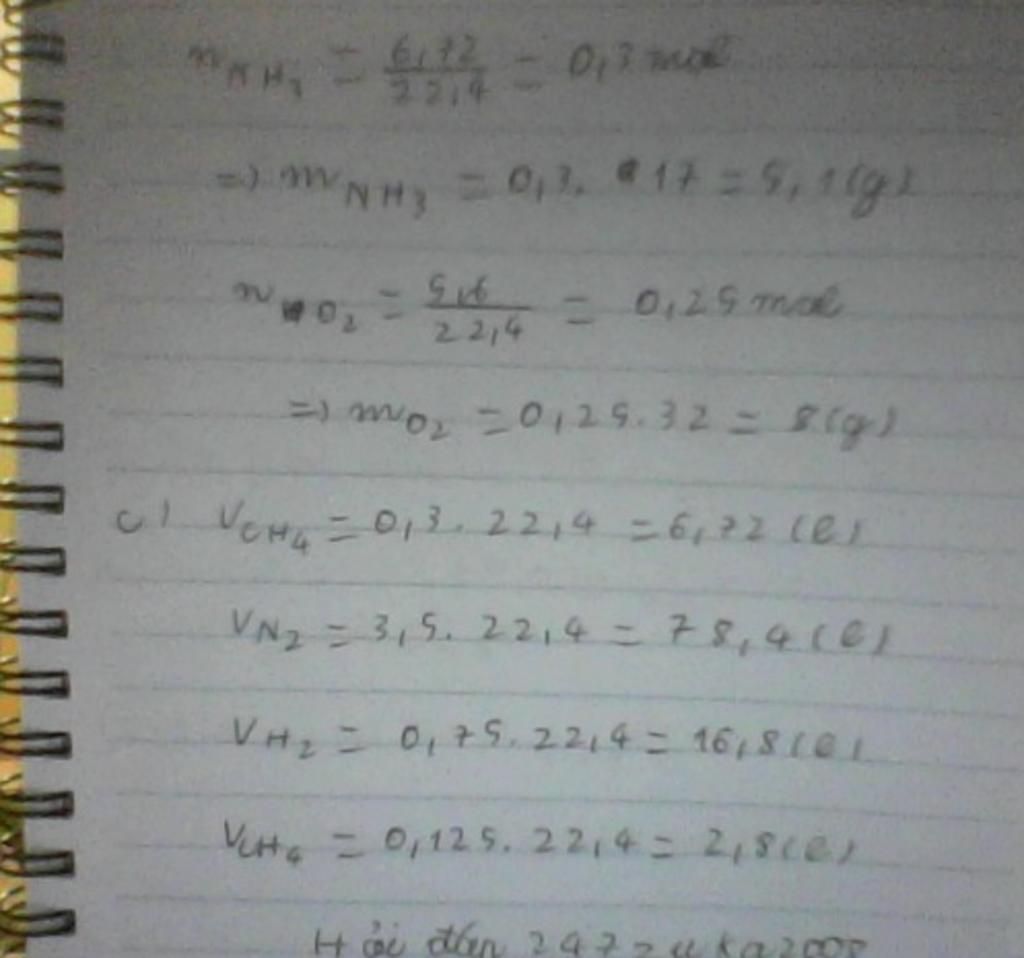 n NH₃ = 6,72 / 22,4 = 0,3 mol
=> m NH₃ = 0,3. 17 = 5,1(g)
n O₂ = 5,6 / 22,4 = 0,25 mol
=> m O₂ = 0,25.32 = 8(g)
c) V CH₄ = 0,3. 22,4 = 6,72 (l)
V N₂ = 3,5. 22,4 = 78,4 (l)
V H₂ = 0,75.22,4 = 16,8(l)
V CH₄ = 0,125. 22,4 = 2,8(l)
Hỏi đáp 247